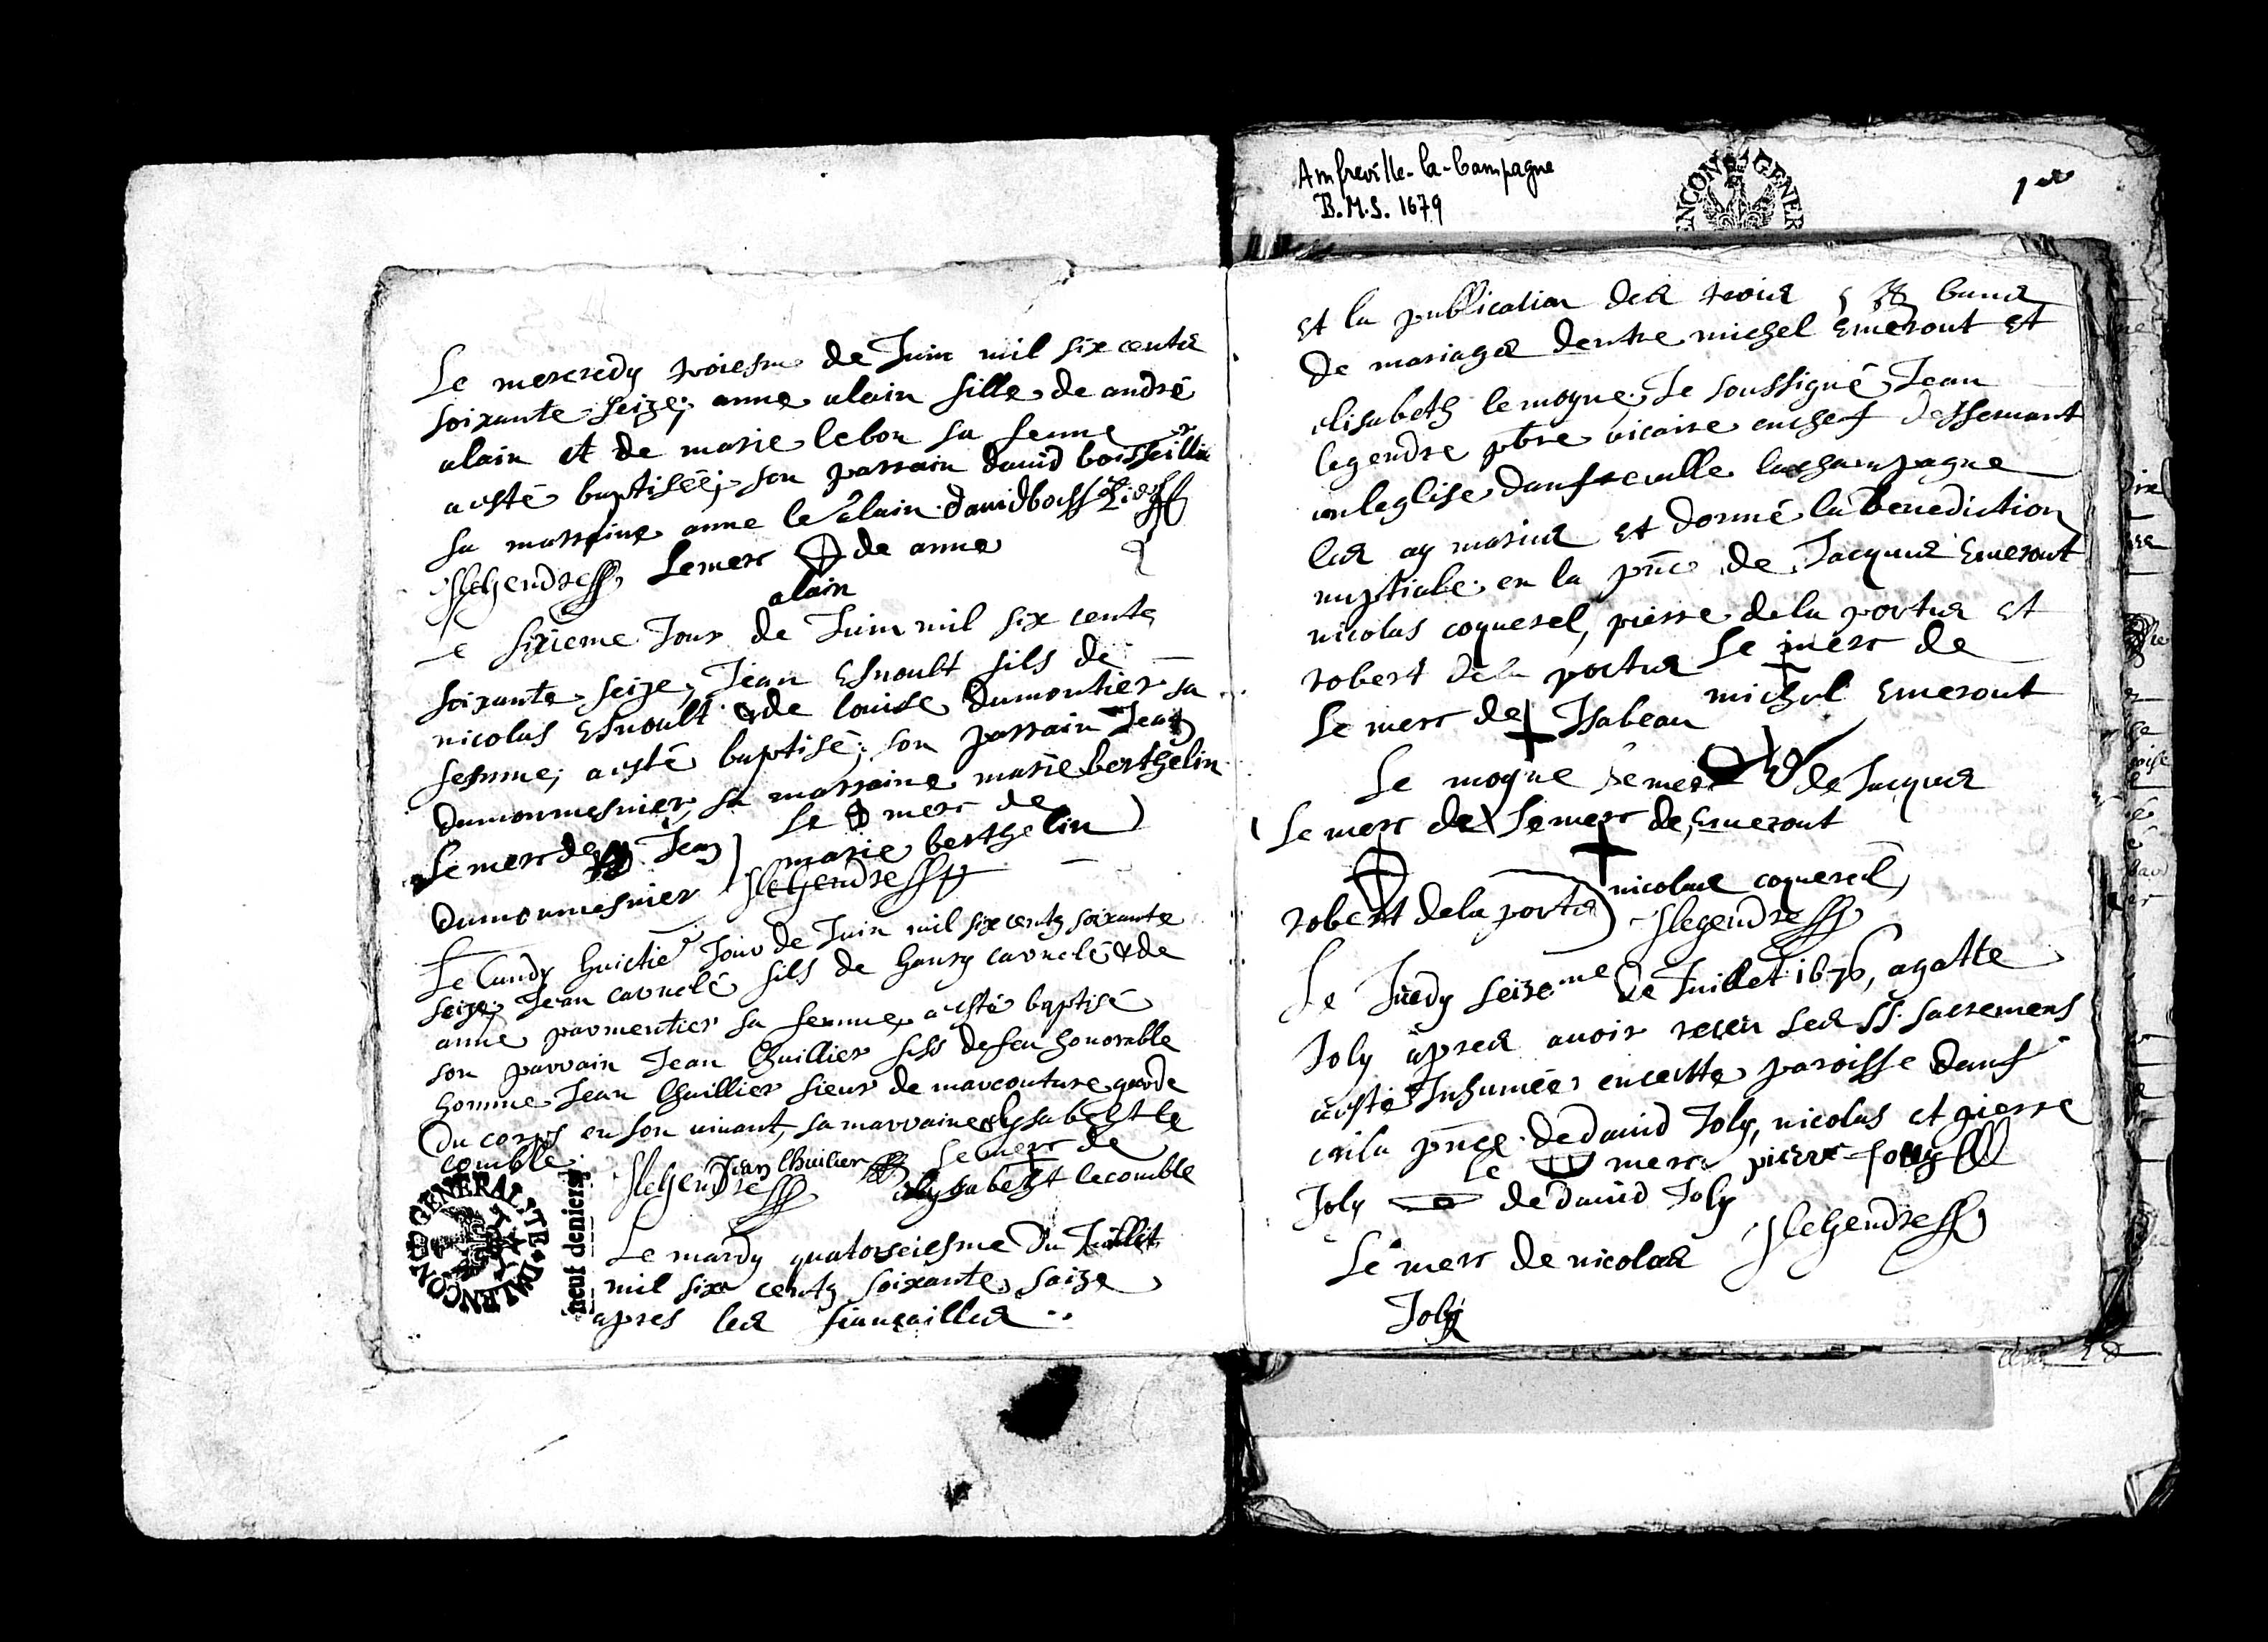 Le mercredy troiesme de Juin mil six cents
soixante seize, anne alain fille de andré
alain et de marie lebon sa femme
a esté baptisée, son parrain david boisseillie
sa marraine anne le alain. david boiss
Jlegendre Le merc de anne
alain
Le sixieme Jour de Juin mil six cents
soixante seize, Jean Esnoult fils de
nicolas Esnoult & de louise dumontier sa
femme, a esté baptisé, son parrain Jean
dumoumesnier, sa marraine marie berthelin
Le merc de Jean Le merc de
dumoumesnier marie berthelin
Jlegendre
Le lundy huictie Jour de Juin mil six cents soixante
seize Jean caruelé fils de hanry caruelé & de
anne parmentier sa femme a esté baptisé
son parrain Jean lhuillier fils de feu honorable
homme Jean lhuillier sieur de marcouture garde
du corps en son vivant, sa marraine elysabeht le
comble. Jean lhuilier Le merc de
Jlegendre elysabeht lecomble
GENERALITE DALENCON
neuf deniers
Le mardy quatorseiesme Du Juillet
mil six cents soixante saize
apres les fiansailles
Amfreville-la-Campagne
B.M.S. 1679
ENCON GENER
1er
et la publication des trois bans
de mariages dentre michel Emerout et
elisabeth lemoyne, Je soussigné Jean
legendre pbre vicaire en chef dessernant
en leglise danfreuille lachampagne
les ay mariés et donné la benediction
nuptiale en la pnce de Jacques Emerout
nicolas coquerel, pierre dela portes et
robert dela portes Le merc de
Le merc de Isabeau michel Emerout
Le moyne Le merc de Jacques
Le merc de Le merc de Emerout
robert dela portes nicolas coquerel
Jlegendre
Le Juedy seizeme De Juillet 1676, agatte
Joly apres auoir receu ses SS. sacremens
a esté Inhumée en cette paroisse danf
en la pnce de david Joly, nicolas et pierre
Joly Le merc de david Joly pierre Jolly
Le merc de nicolas Jlegendre
Joly